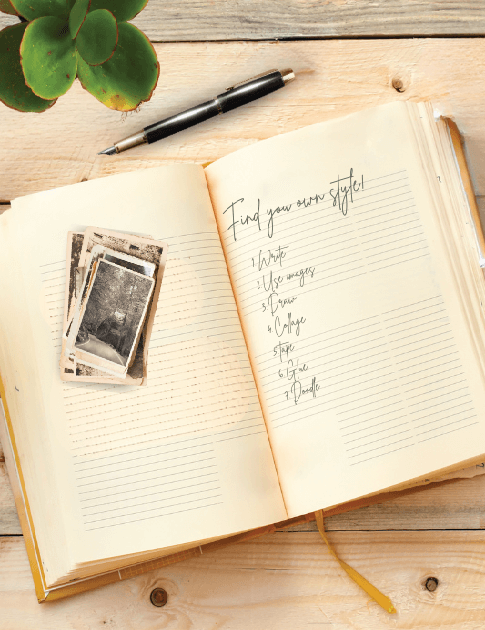 Find you own style!
1. Write
2. Use images
3. Draw
4. Collage
5. Tape
6. Glue
7. Doodle